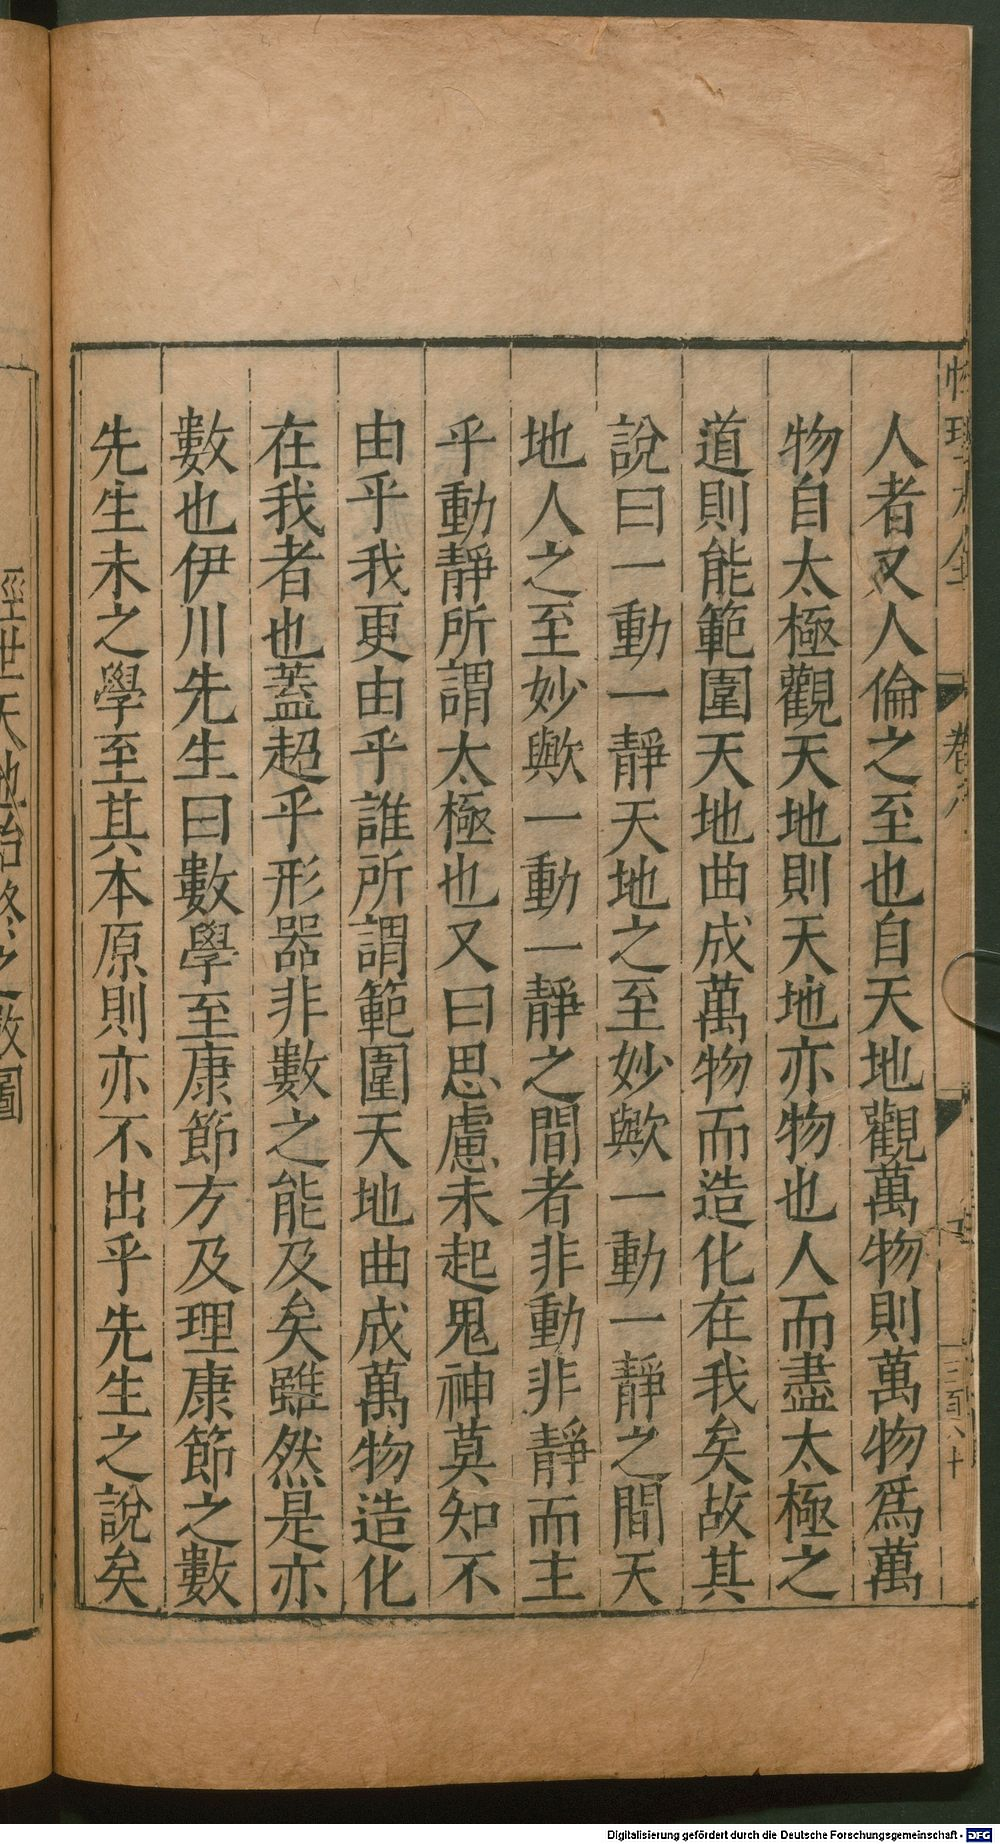 性理大全
卷八
三百六十
人者又人倫之至也自天地觀萬物則萬物爲萬
物自太極觀天地則天地亦物也人而盡太極之
道則能範圍天地曲成萬物而造化在我矣故其
說曰一動一靜天地之至妙歟一動一靜之間天
地人之至妙歟一動一靜之間者非動非靜而主
乎動靜所謂太極也又曰思慮未起鬼神莫知不
由乎我更由乎誰所謂範圍天地曲成萬物造化
在我者也蓋超乎形器非數之能及矣雖然是亦
數也伊川先生曰數學至康節方及理康節之數
先生未之學至其本原則亦不出乎先生之說矣
經世天地始終之數圖
Digitalisierung gefördert durch die Deutsche Forschungsgemeinschaft - DFG